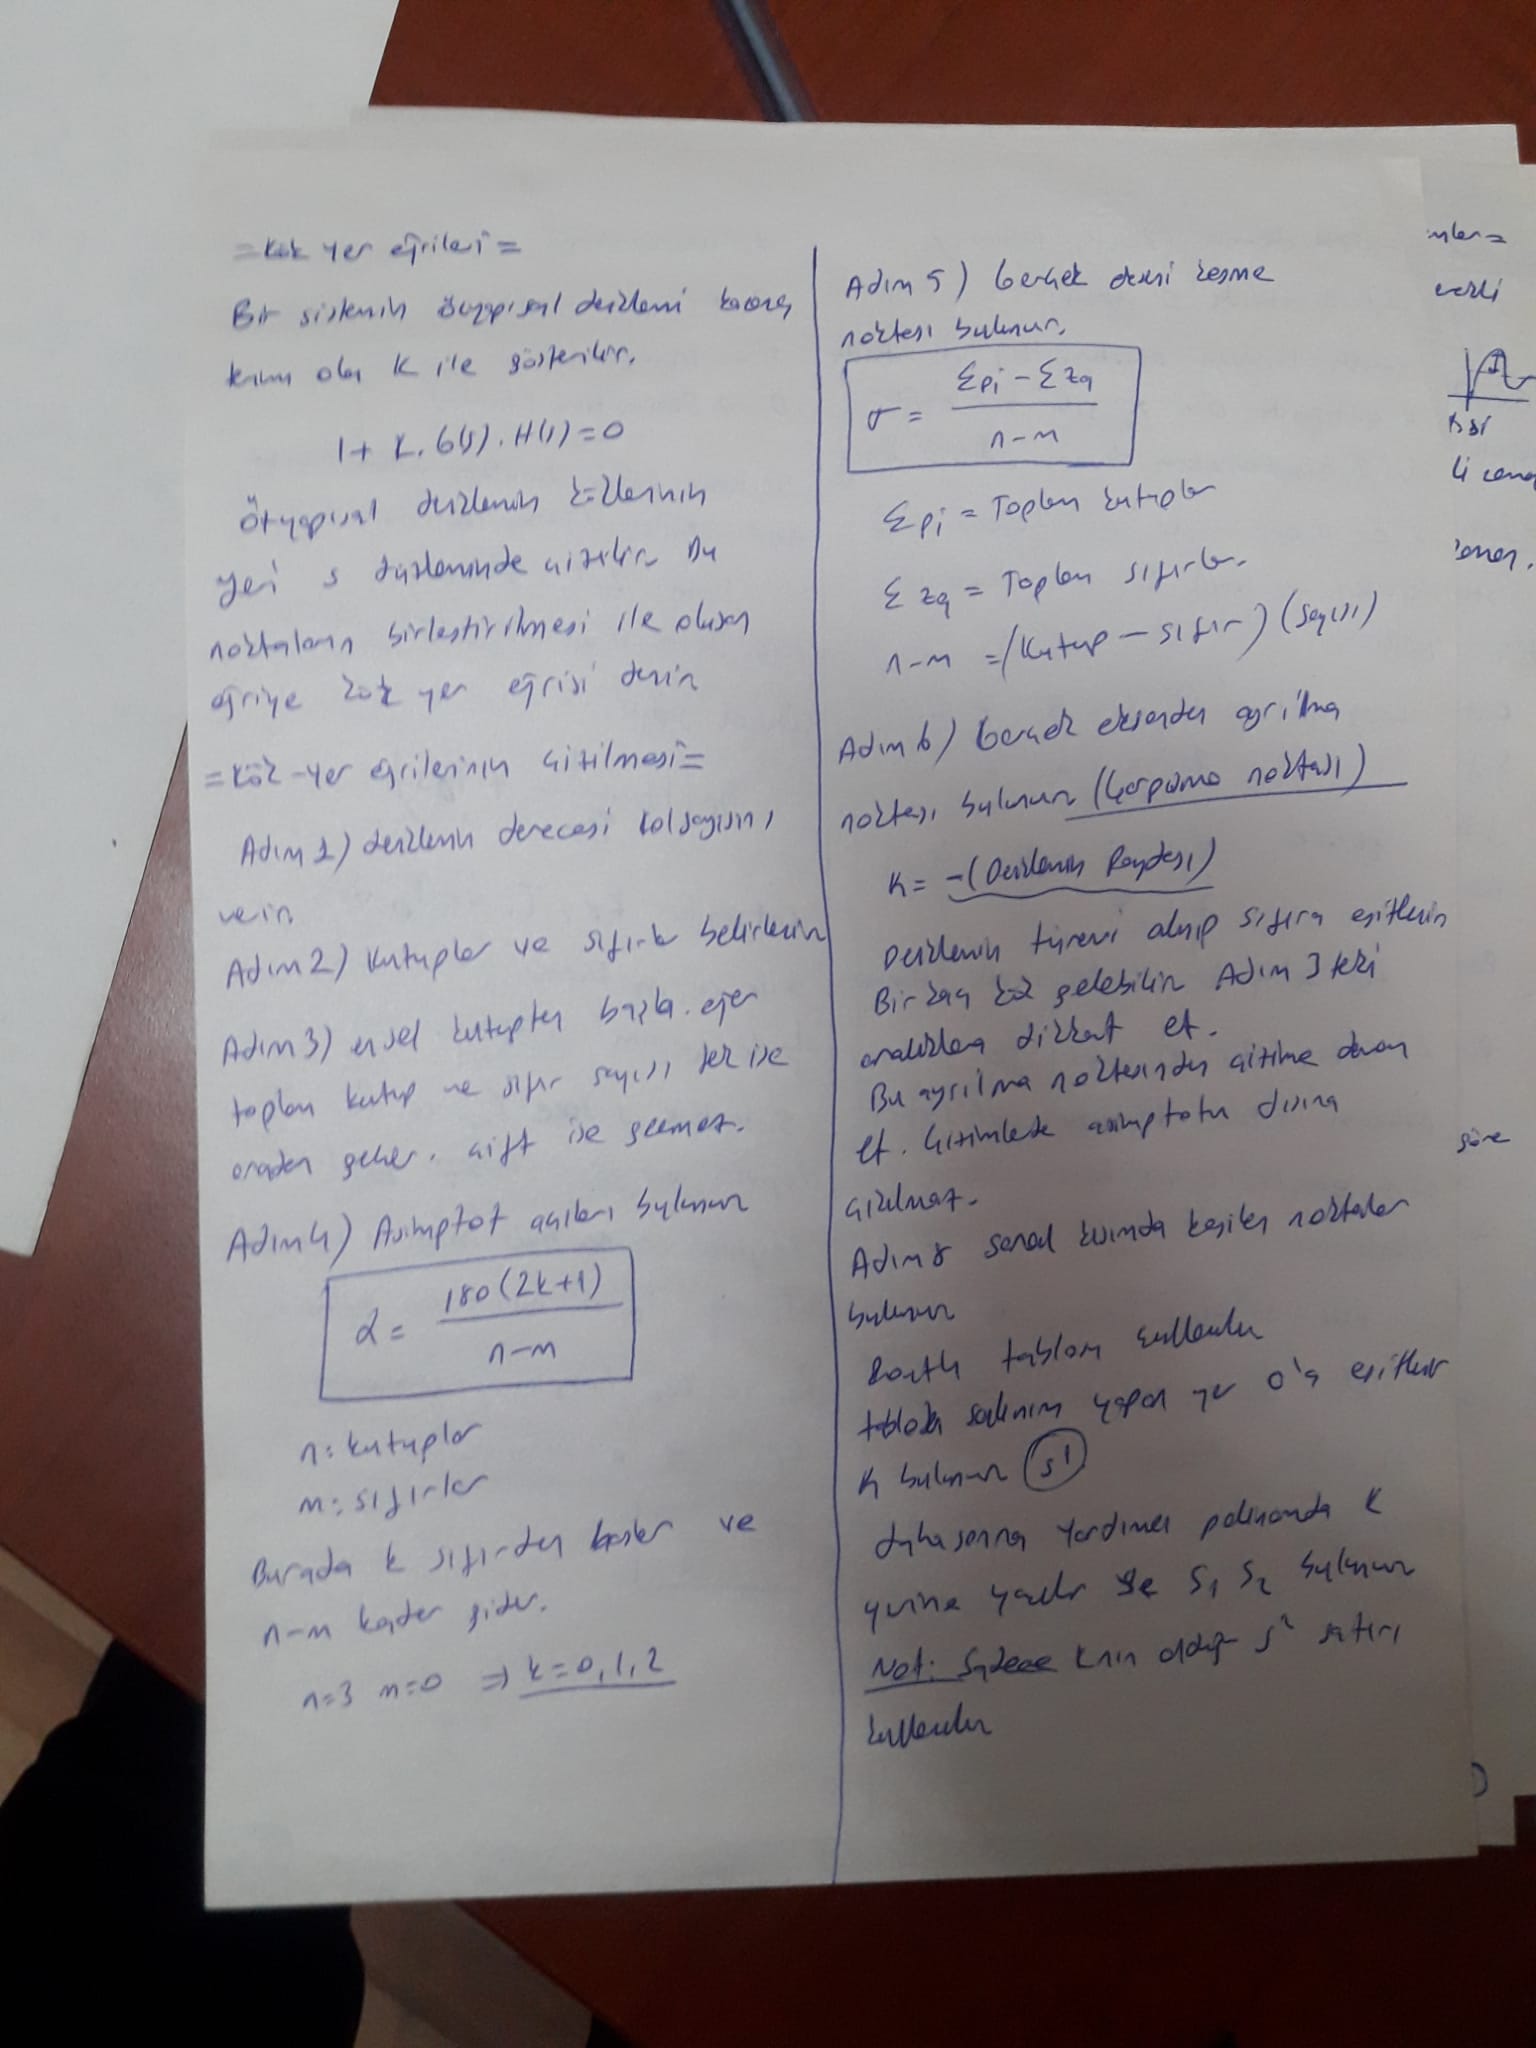 = Kök yer eğrileri =
Bir sistemin özyapısal denklemi kazanç
kısmı olan K ile gösterilir.
1 + K. G(s) . H(s) = 0
Özyapısal denklemin köklerinin
yeri s düzleminde çizilir. Bu
noktaların birleştirilmesi ile oluşan
eğriye kök yer eğrisi denir
= Kök-yer eğrilerinin çizilmesi =
Adım 1) denklemin derecesi kol sayısını
verir.
Adım 2) Kutuplar ve sıfırlar belirlenir
Adım 3) kutuptan başla. eğer
toplam kutup ve sıfır sayısı tek ise
oradan geçer. çift ise geçemez.
Adım 4) Asimptot açıları bulunur
α = 180(2k+1) / n-m
n: kutuplar
m: sıfırlar
Burada k sıfırdan başlar ve
n-m kadar gider.
n=3 m=0 ⇒ k=0,1,2
Adım 5) Gerçek ekseni kesme
noktası bulunur.
σ = Σpi - Σzq / n-m
Σpi = Toplam kutuplar
Σzq = Toplam sıfırlar.
n-m = (Kutup - sıfır) (sayısı)
Adım 6) Gerçek eksenden ayrılma
noktası bulunur (Çarpışma noktası)
K = -(Denklemin Paydası)
Denklemin türevi alınıp sıfıra eşitlenir
Bir kaç kök gelebilir. Adım 3 teki
aralıklara dikkat et.
Bu ayrılma noktasından çizime devam
et. Çizimlerde asimptotun dışına
çizilmez.
Adım 8 sanal kısımda kesilen noktalar
bulunur
Routh tablosu kullanılır
tabloda salınım yapan yer 0'a eşitlenir
K bulunur s¹
daha sonra Yardımcı polinomda K
yerine yazılır ve S₁ S₂ bulunur
Not: Sadece K nın olduğu s² satırı
kullanılır
göre